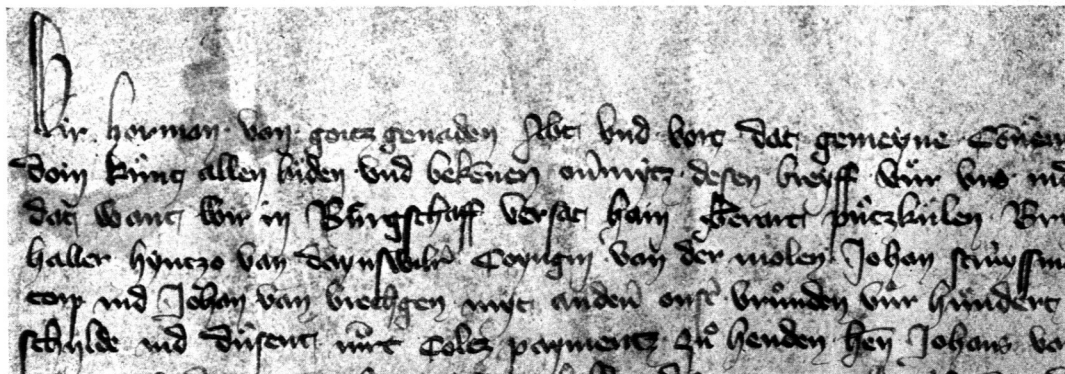 Wir herman van gotz genaden Abt vnd vort dat gemeyne Cōuen
doin kunt allen luden vnd bekēnen ouͤmitz desen breyff vur vns ind
dat want wir in Burgschaff versat hain Gerart putzkulen
haller hyntzo van Coyngin van der molen Johan
ind Johan van myt andeͬn onsͤ vrunden vur hundert
schylde ind dusent mͬc Coletz payments zu henden heͬn Johans va